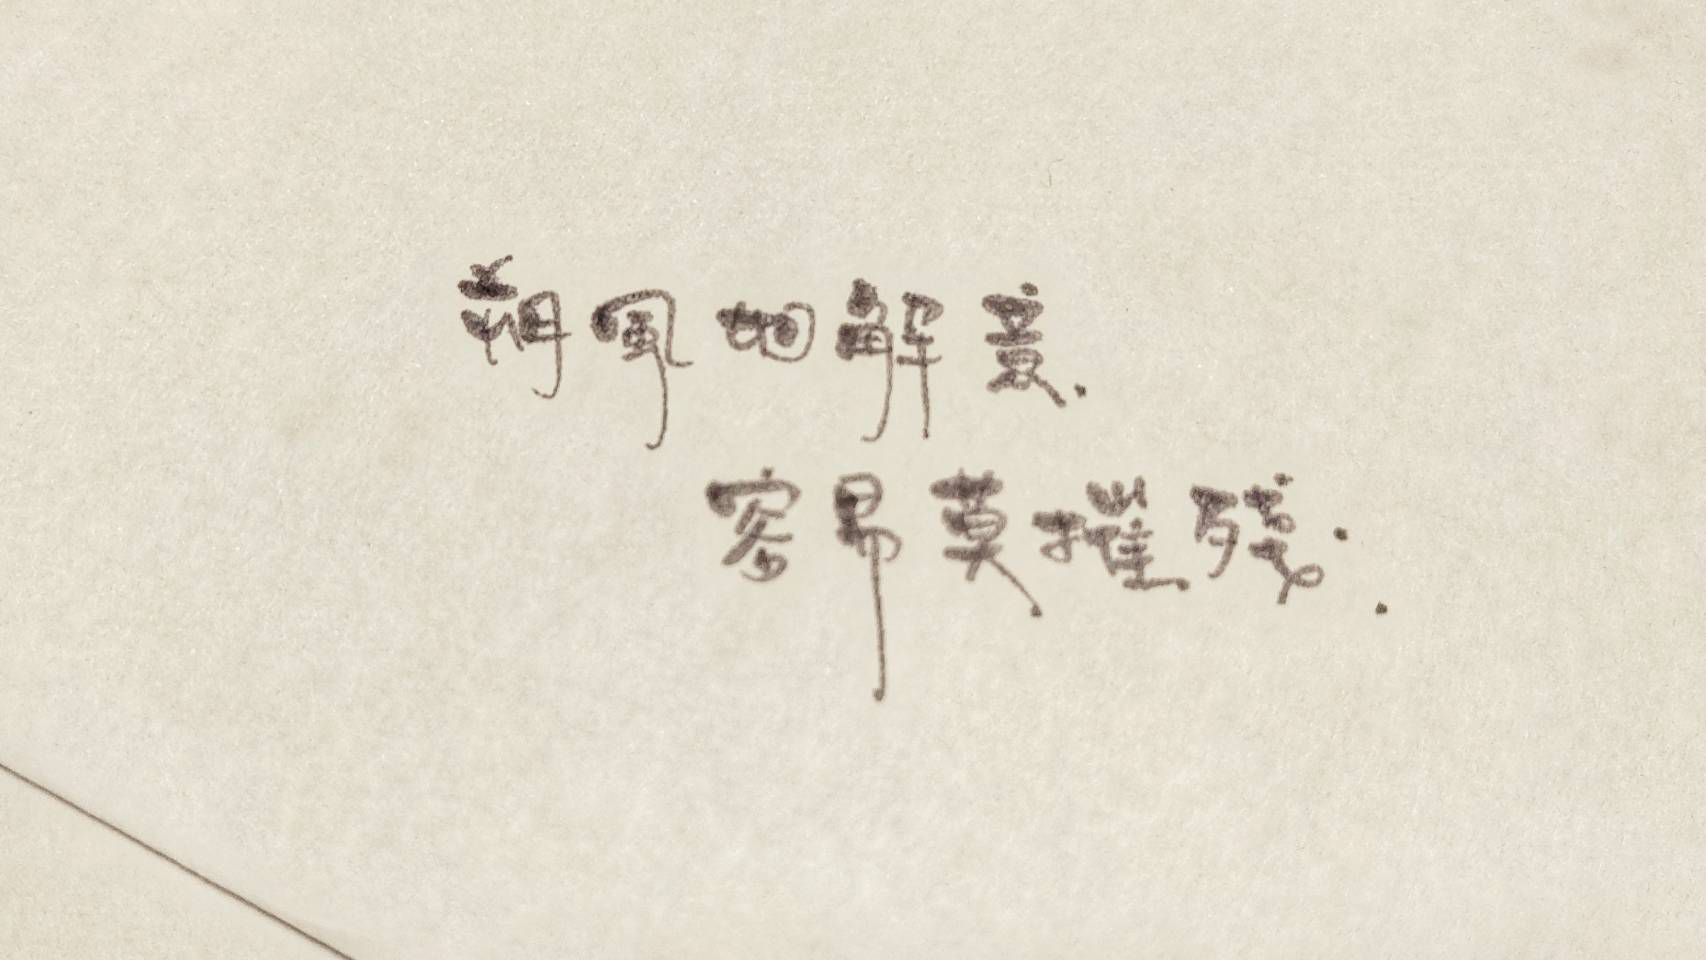 朔風如解意.
容易莫摧殘.